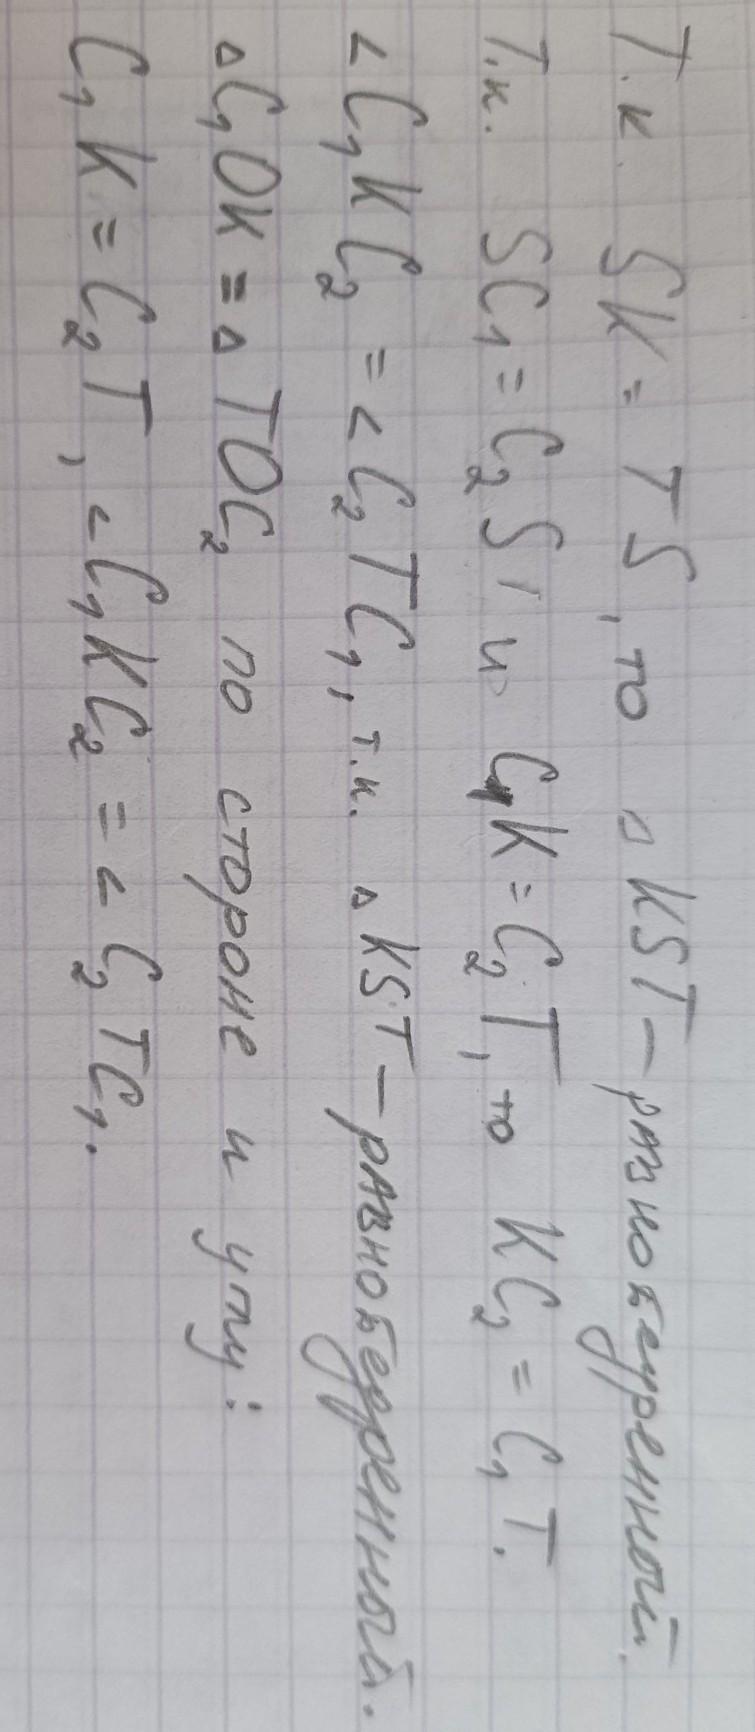 Т.к. SK = TS, то △KST – равнобедренный.
Т.к. SC₁ = C₂S, и C₁K = C₂T, то KC₂ = C₁T.
∠C₁KC₂ = ∠C₂TC₁, т.к. △KST – равнобедренный.
△C₁OK = △TOC₂ по стороне и углу:
C₁K = C₂T, ∠C₁KC₂ = ∠C₂TC₁.